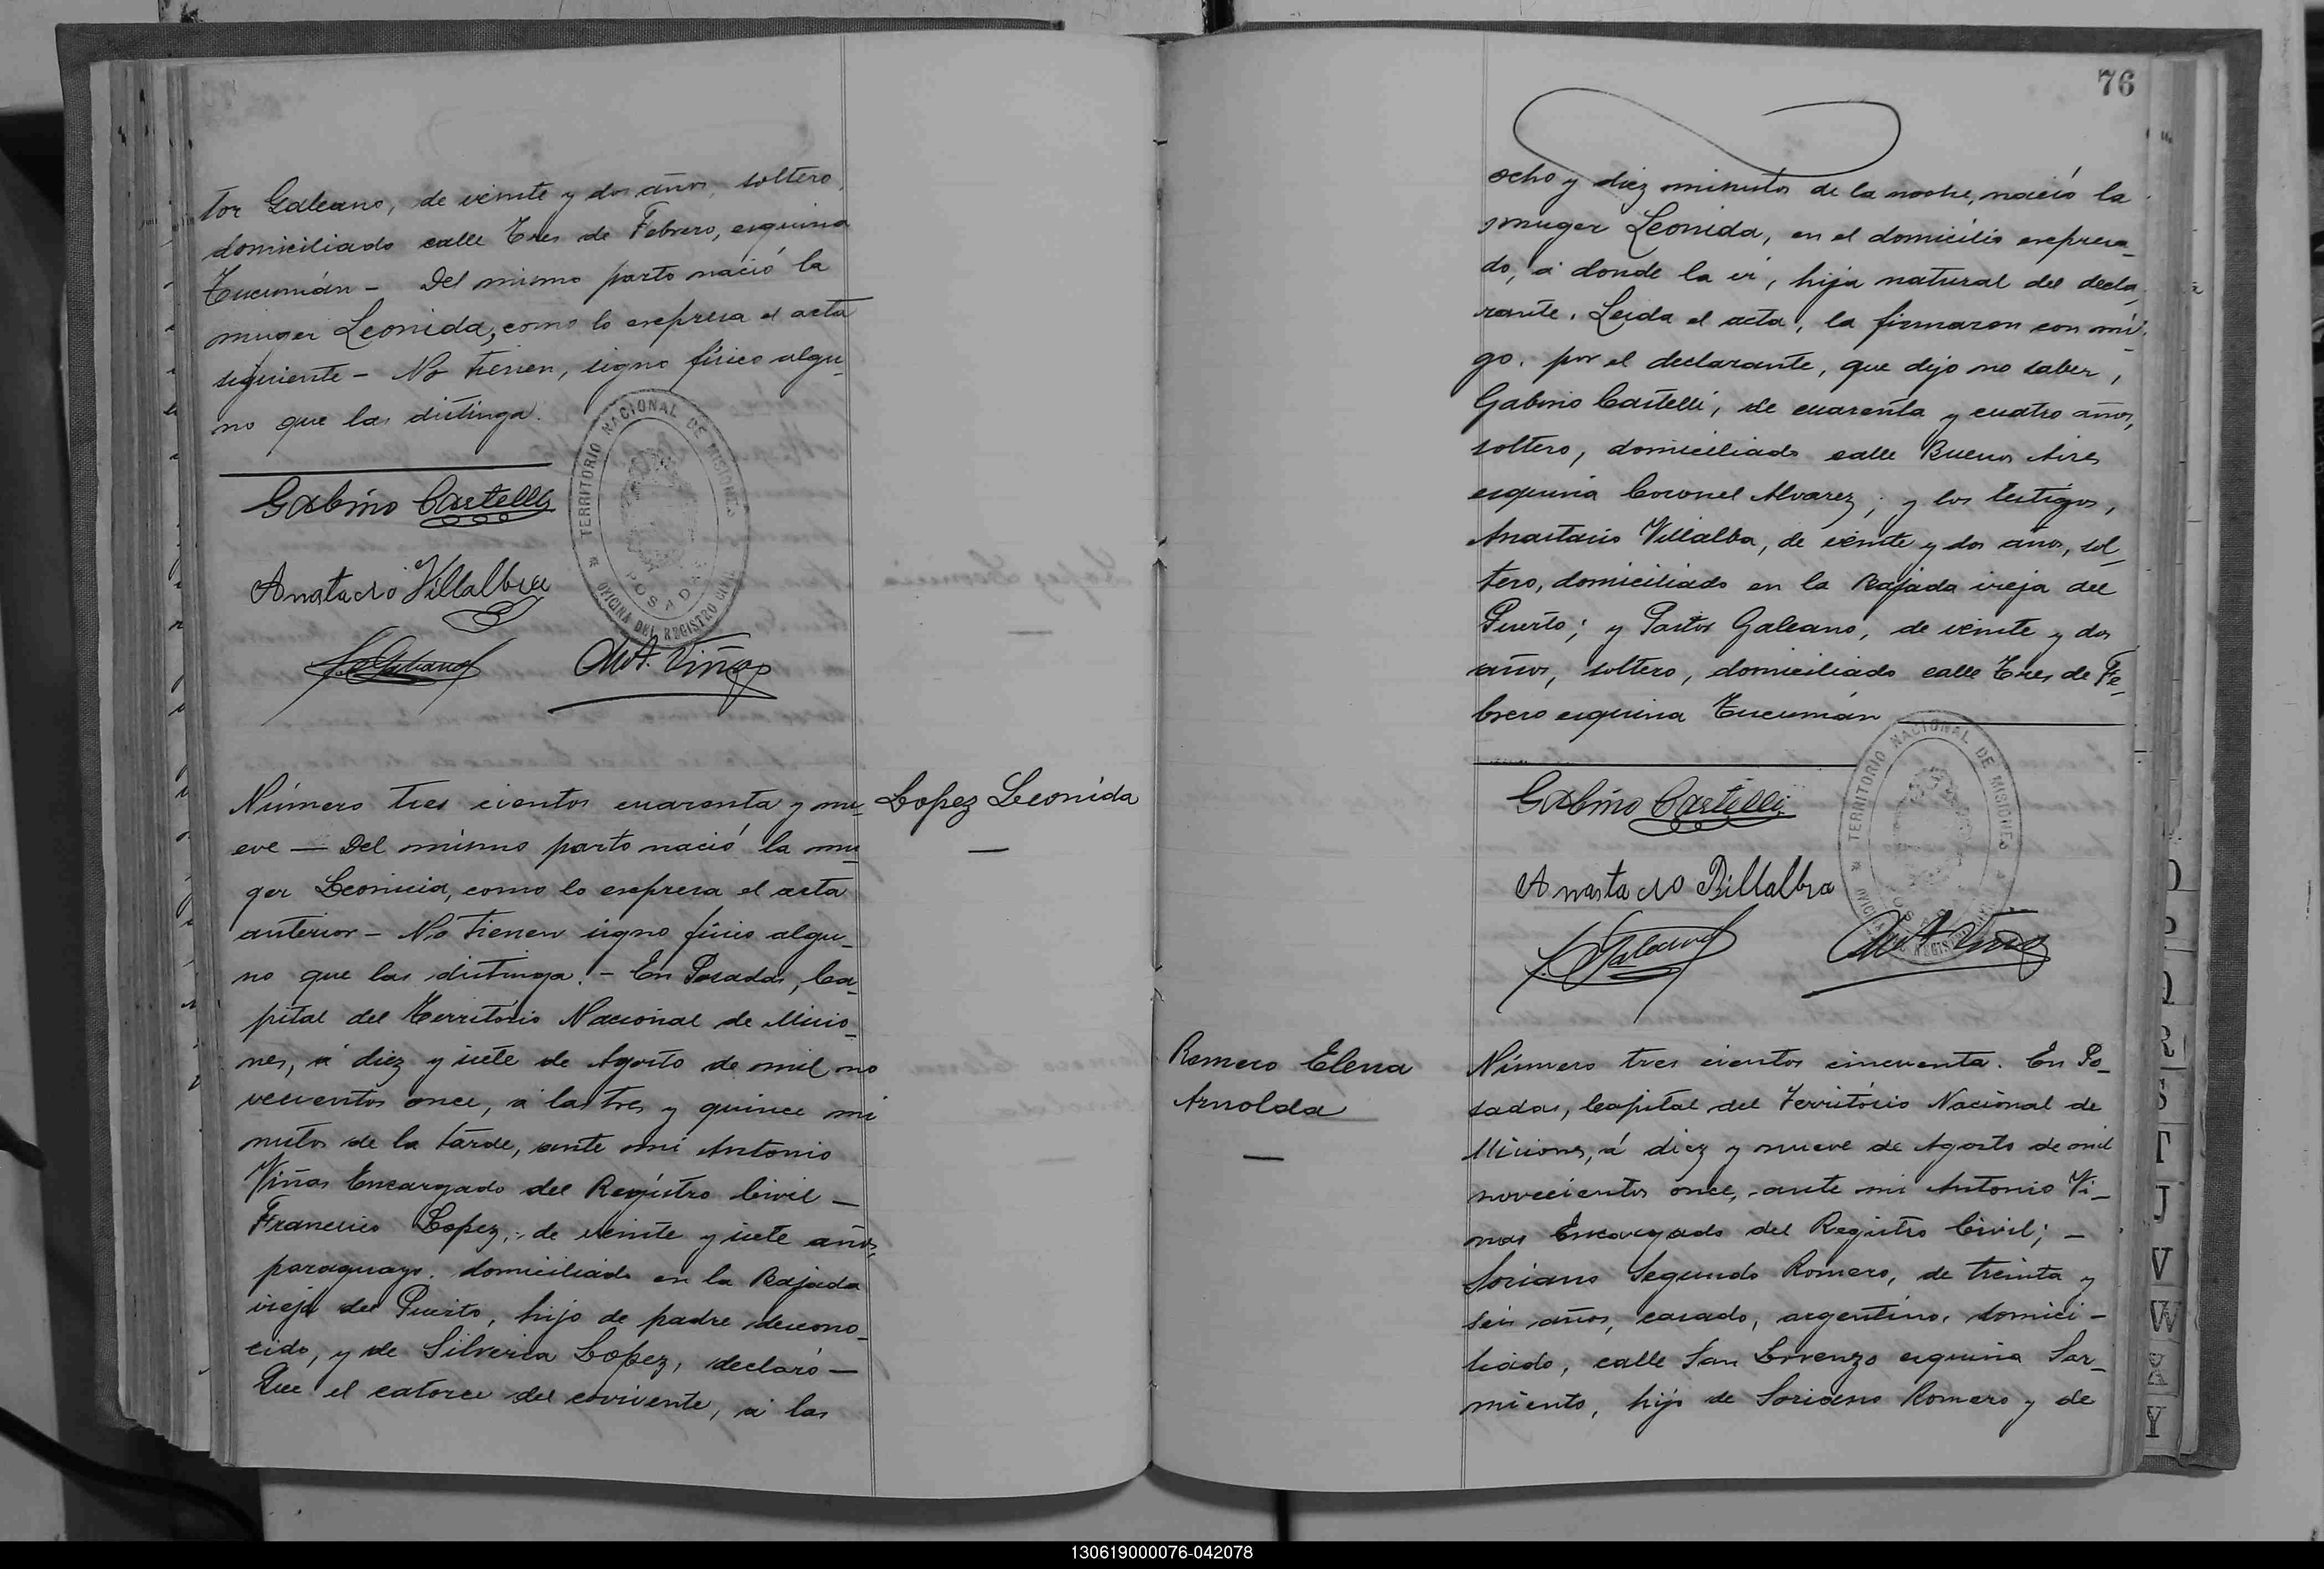 tor Galeano, de veinte y dos años, soltero,
domiciliado calle Tres de Febrero, esquina
Tucumán - Del mismo parto nació la
muger Leonida, como lo espresa el acta
siguiente - No tienen, signo físico algu-
no que las distinga.
TERRITORIO NACIONAL DE MISIONES
POSADAS
OFICINA DEL REGISTRO CIVIL
Gabino Castelli
Anastacio Villalbra
Ant. Viñas
Número tres cientos cuarenta y nu-
eve — Del mismo parto nació la mu-
ger Leonicia, como lo espresa el acta
anterior - No tienen signo físico algu-
no que las distinga. - En Posadas, Ca-
pital del Territorio Nacional de Misio-
nes, á diez y siete de Agosto de mil no
vecientos once, á las tres y quince mi
nutos de la tarde, ante mi Antonio
Viñas Encargado del Registro Civil —
Francisco Lopez, de veinte y siete años,
paraguayo. domiciliado en la Bajada
vieja del Puerto, hijo de padre descono-
cido, y de Silveria Lopez, declaró —
Que el catorce del corriente, á las
Lopez Leonida
76
ocho y diez minutos de la noche, nació la
muger Leonida, en el domicilio espresa-
do, á donde la ví, hija natural del decla-
rante. Leida el acta, la firmaron con mí-
go. por el declarante, que dijo no saber,
Gabino Castelli, de cuarenta y cuatro años,
soltero, domiciliado calle Buenos Aires
esquina Coronel Alvarez; y los testigos,
Anastacio Villalba, de veinte y dos años, sol-
tero, domiciliado en la Bajada vieja del
Puerto; y Pastor Galeano, de veinte y dos
años, soltero, domiciliado calle Tres de Fe-
brero esquina Tucumán
TERRITORIO NACIONAL DE MISIONES
Gabino Castelli
Anastacio Billalbra
Ant. Viñas
Romero Elena
Arnolda
Número tres cientos cincuenta. En Po-
sadas, Capital del Territorio Nacional de
Misiones, á diez y nueve de Agosto de mil
novecientos once, ante mi Antonio Vi-
ñas Encargado del Registro Civil; —
Soriano Segundo Romero, de treinta y
seis años, casado, argentino, domici-
liado, calle San Lorenzo esquina Sar-
miento, hijo de Soriano Romero y de
O
P
Q
R
S
T
J
V
W
X
Y
130619000076-042078